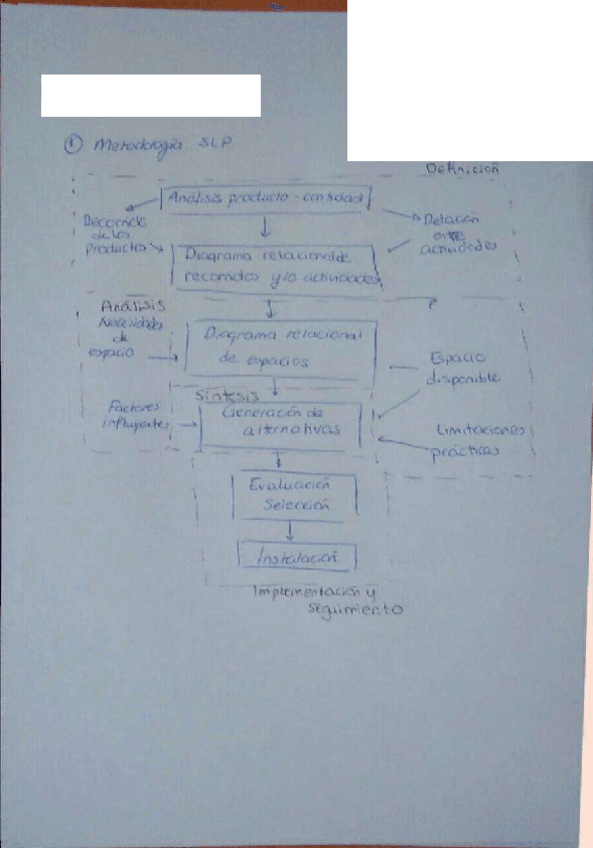 ① Metodología SLP
Definición
Análisis producto - cantidad
Recorrido
de los
productos
Relación
entre
actividades
Diagrama relacional de
recorridos y/o actividades
Análisis
Necesidades
de
espacio
Diagrama relacional
de espacios
Espacio
disponible
Síntesis
Factores
influyentes
Generación de
alternativas
Limitaciones
prácticas
Evaluación
Selección
Instalación
Implementación y
seguimiento